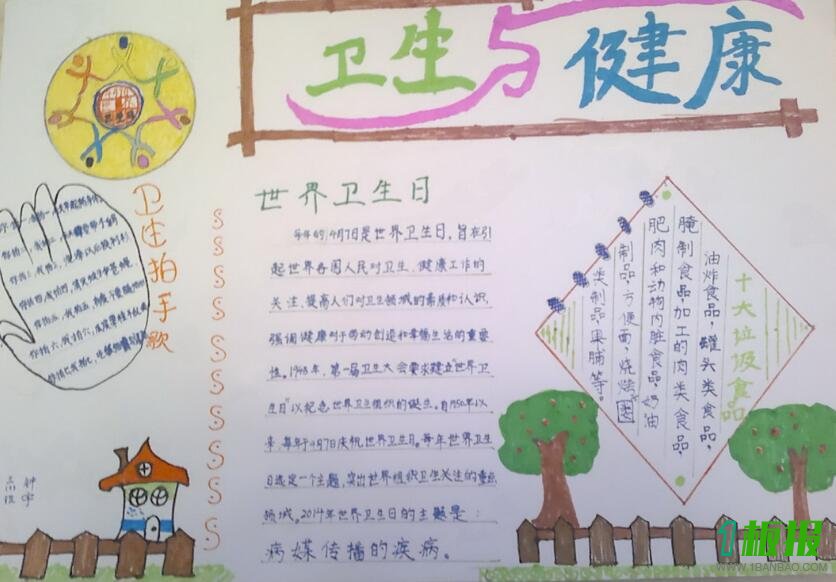 卫生与健康
世界卫生日
每年的4月7日是世界卫生日，旨在引
起世界各国人民对卫生、健康工作的
关注、提高人们对卫生领域的素质和认识，
强调健康对于劳动创造和幸福生活的重要
性。1948年，第一届卫生大会要求建立“世界卫
生日”以纪念世界卫生组织的诞生。自1950年以
来，每年于4月7日庆祝世界卫生日。每年世界卫生
日选定一个主题，突出世界组织卫生关注的重点
领域。2014年世界卫生日的主题是：
病媒传播的疾病。
卫生拍手歌
十大垃圾食品
油炸食品，罐头类食品，
腌制食品，加工的肉类食品，
肥肉和动物内脏食品，奶油
制品，方便面，烧烤
类制品，果脯等。
1板报
WWW.1BANBAO.COM